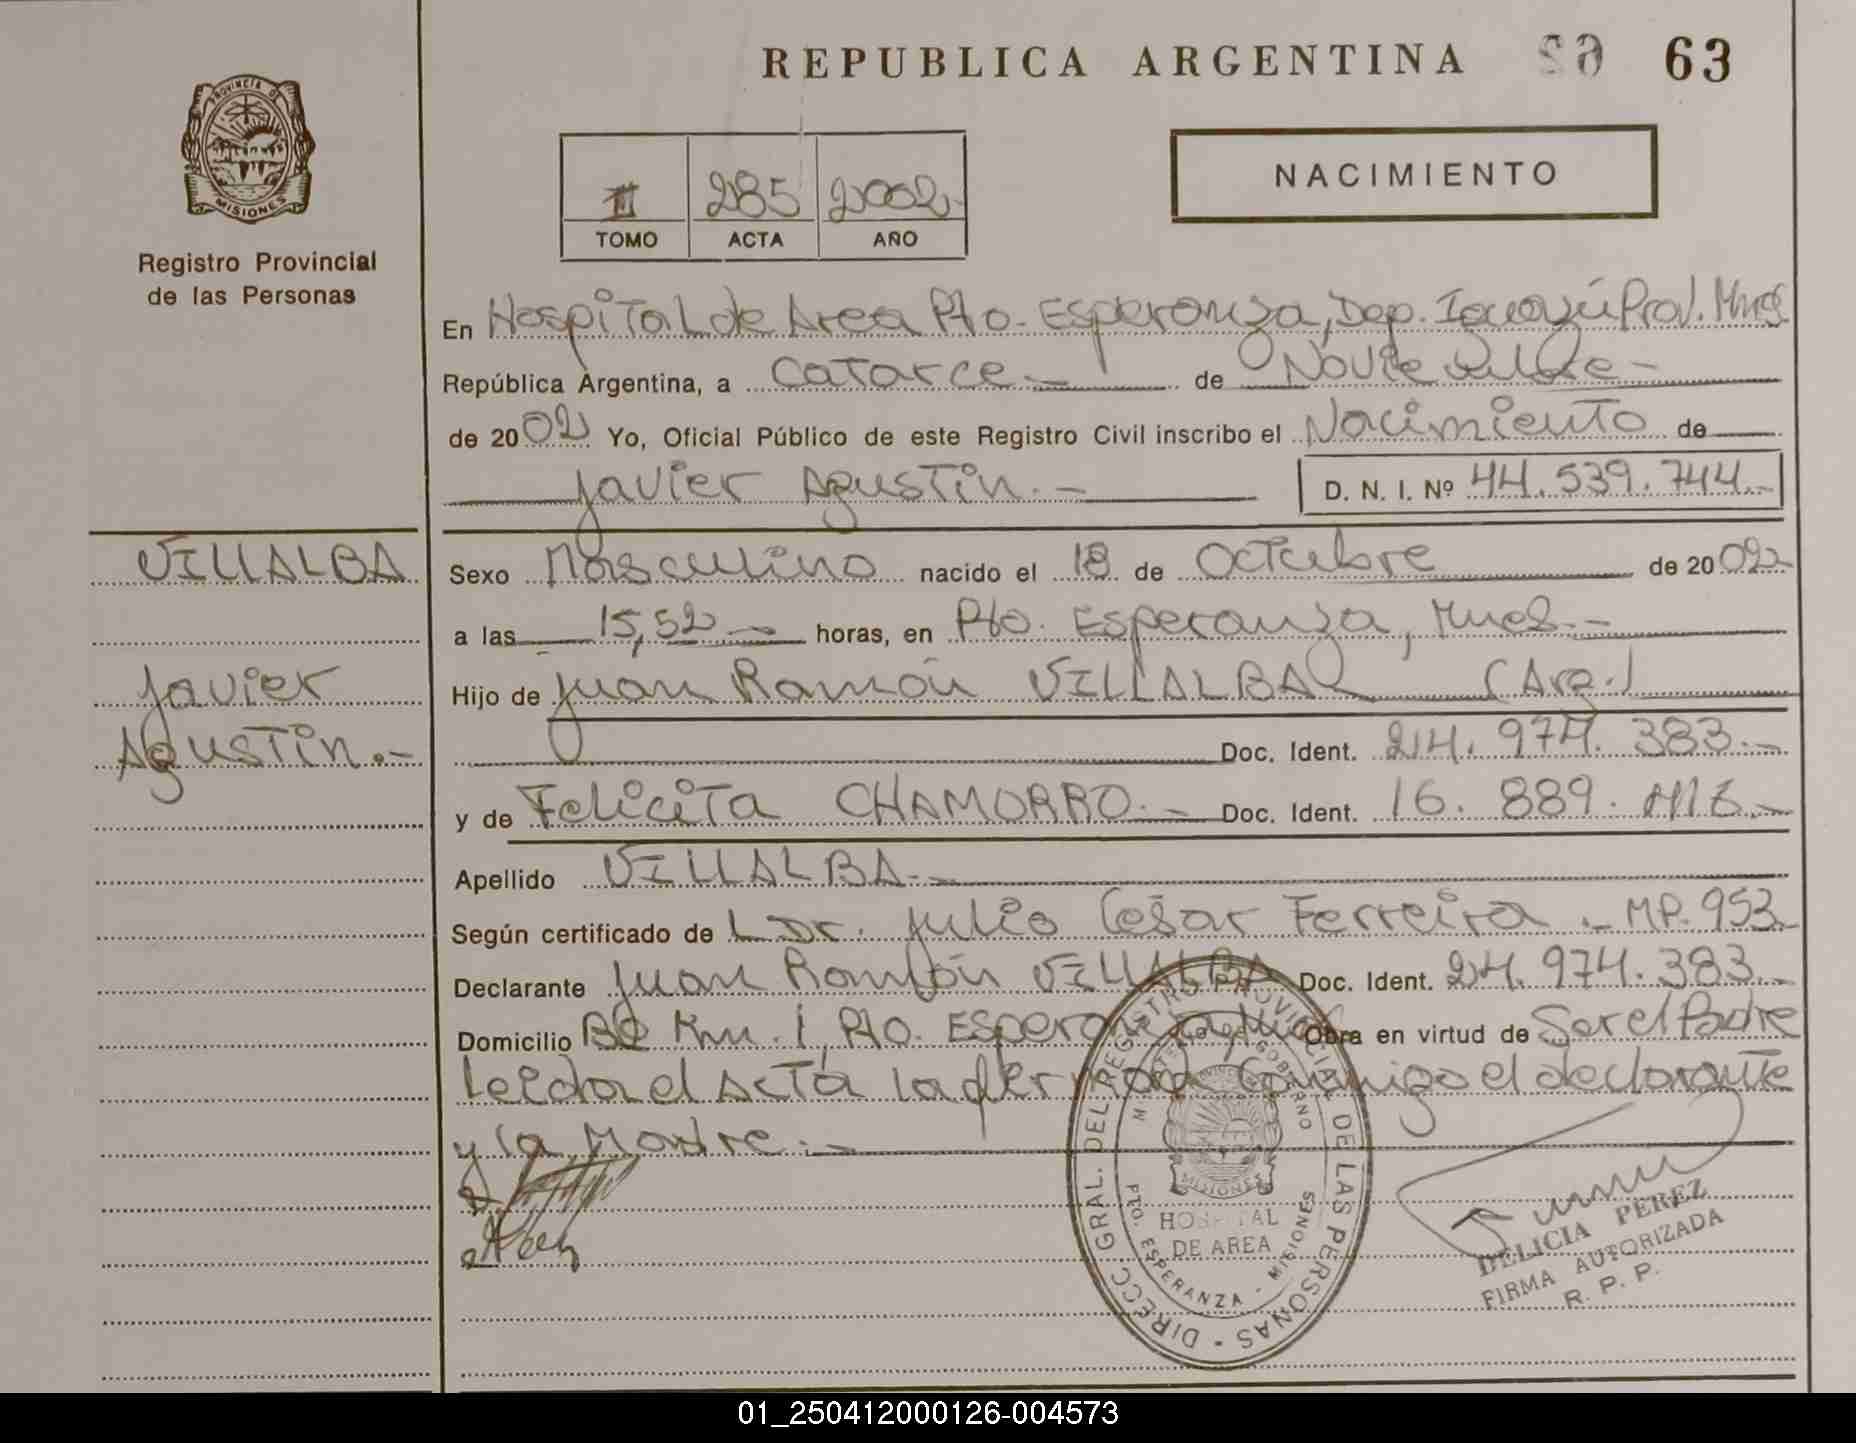 REPUBLICA ARGENTINA 63
PROVINCIA DE
MISIONES
Registro Provincial
de las Personas
II 285 2002-
TOMO ACTA AÑO
NACIMIENTO
En Hospital de Area Pto. Esperanza, Dep. Iguazú Prov. Mnes
República Argentina, a catorce.- de Noviembre-
de 2002 Yo, Oficial Público de este Registro Civil inscribo el Nacimiento de
Javier Agustin.- D. N. I. Nº 44.539.744.-
VILLALBA
Javier
Agustin.-
Sexo Masculino nacido el 18 de Octubre de 2002
a las 15,52- horas, en Pto. Esperanza, Mnes.-
Hijo de Juan Ramón VILLALBA (Arg.)
Doc. Ident. 24.974.383.-
y de Felicita CHAMORRO.- Doc. Ident. 16.889.
Apellido VILLALBA.-
Según certificado de Dr. Julio César Ferreira.- MP. 953-
Declarante Juan Ramón VILLALBA Doc. Ident. 24.974.383.-
Domicilio Bº Km. 1, Pto. Esperanza, Obra en virtud de Ser el Padre
Leida el Acta la firman Conmigo el declarante
y la Madre.-
DIRECC. GRAL. DEL REGISTRO PROVINCIAL DE LAS PERSONAS
GOBIERNO
MISIONES
HOSPITAL
DE AREA
PTO. ESPERANZA - MISIONES
DELICIA PEREZ
FIRMA AUTORIZADA
R. P. P.
01_250412000126-004573